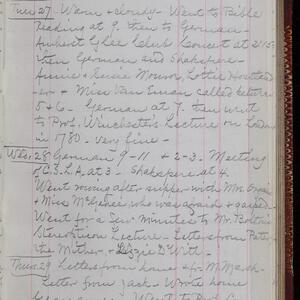 Tues 27 Warm & cloudy - Went to Bible
Reading at 9. then to German -
Amherst Glee Club Concert at 2:15
then German and Shakspere -
Annie & Susie Mower, Lottie
er & Miss Van Eman called between
5 & 6. German at 7. Then went
to Prof. Winchester's Lecture on London
in 1780 - very fine -
Wed. 28 German 9-11 & 2-3. Meeting
of C.S.L.A. at 3. Shakspere at 4.
Went rowing after supper with Mrs.
& Miss who was afraid &
Went for a few minutes to Mr.
Lecture - Letters from Pater,
the Mither, & Lizzie D. Witt.
Thurs. 29 Letters from home & fr. M.
Letter from Jack. Wrote home